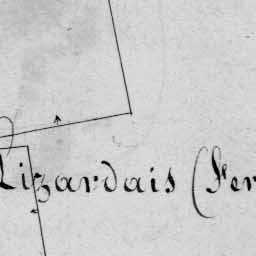 Lizardais (Fer